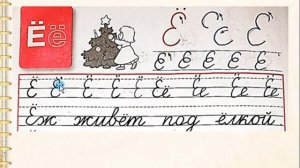 Ёё
Ё Ё Ё
Ё Ё Ё Ё Ё
Ё Ё Ё Ё Ё Ёё Ёё Ёё Ёё
Ёж живёт под ёлкой